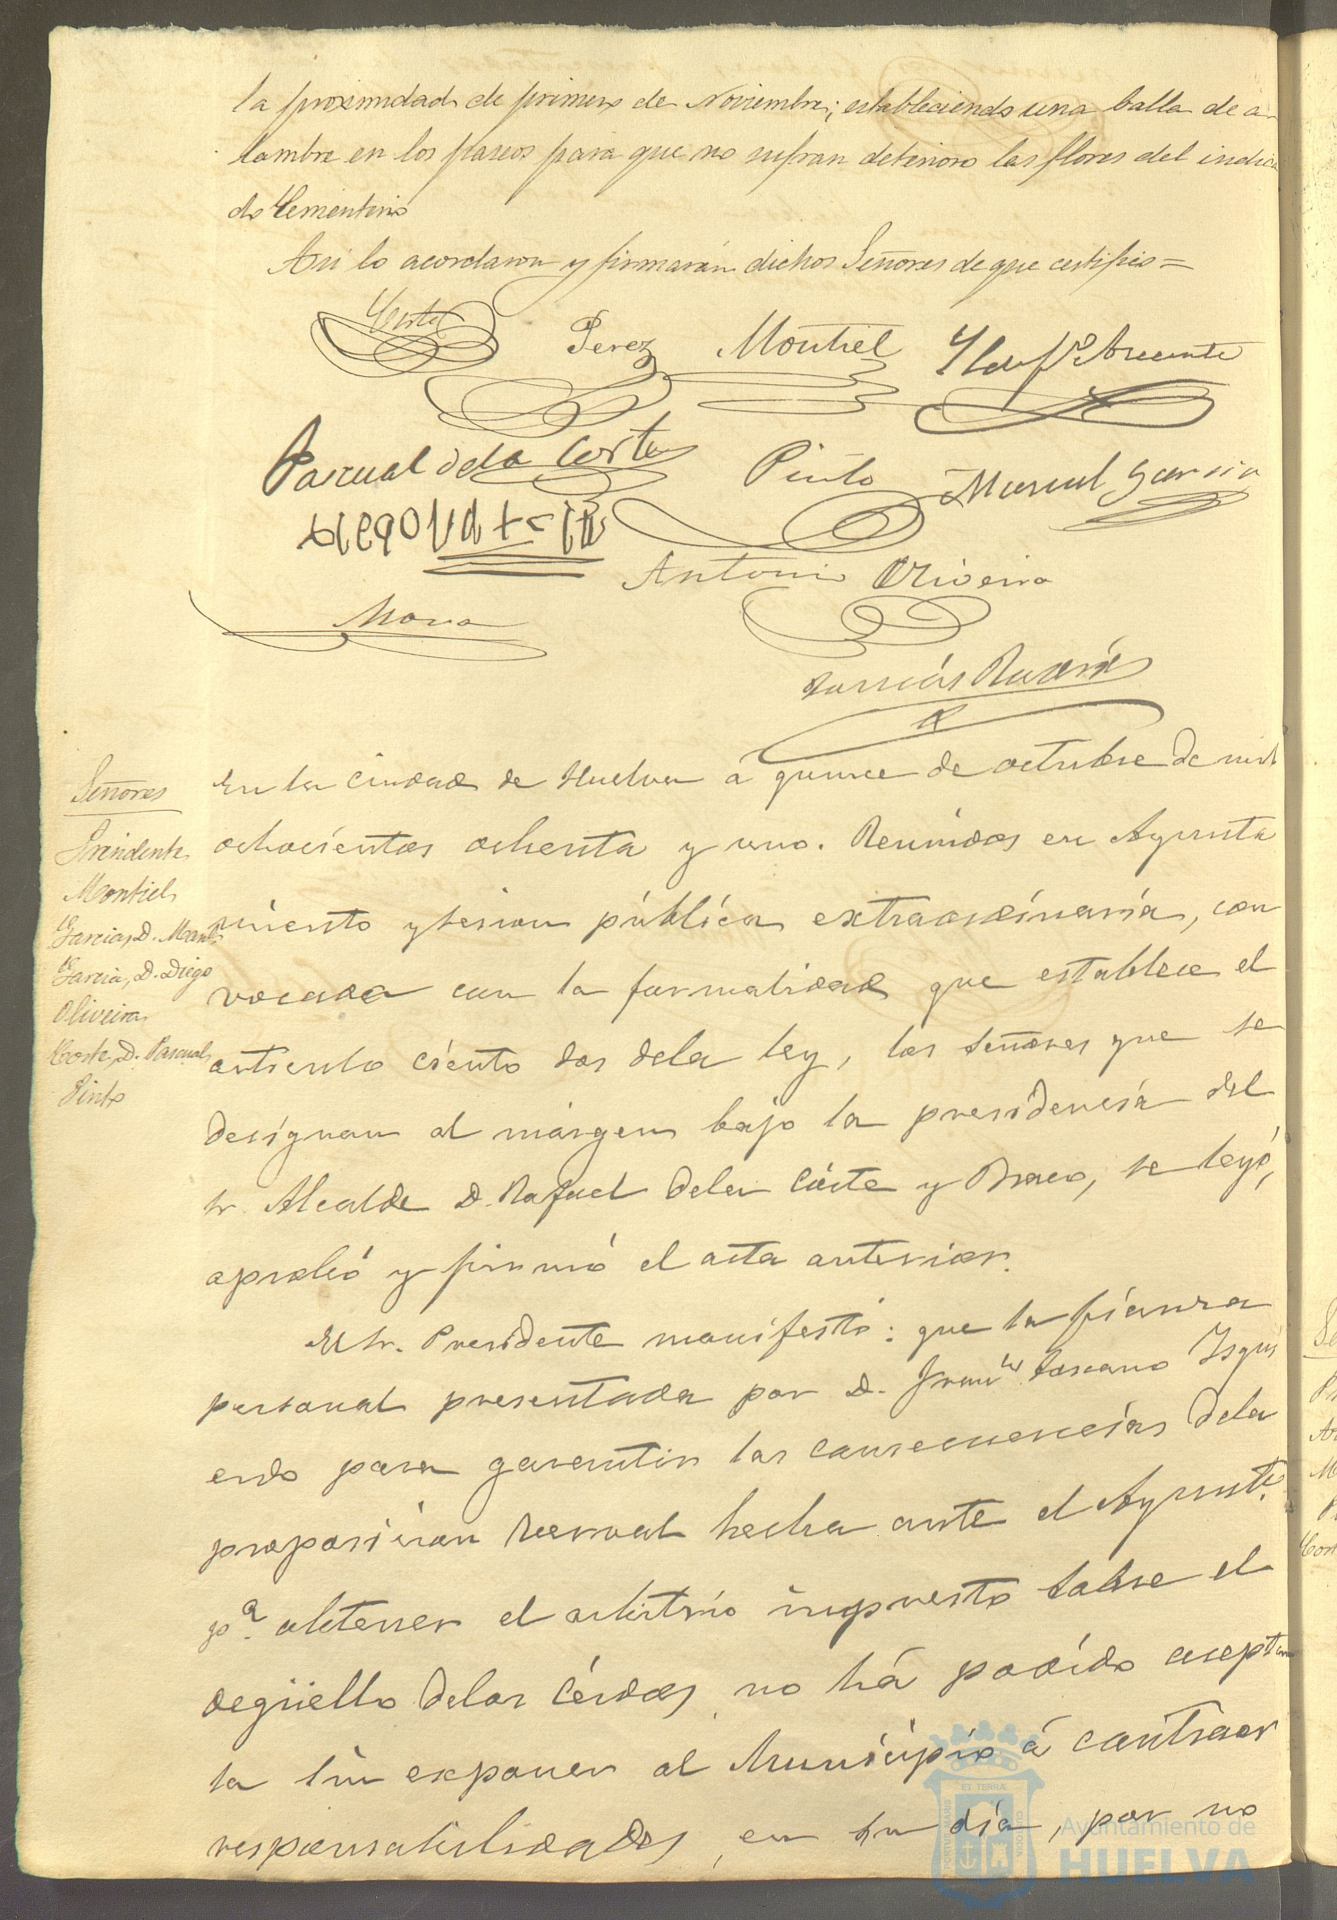 la proximidad de primero de Noviembre; estableciendo una balla de a-
lambre en los paseos para que no sufran deterioro las flores del indica
do Cementerio
Asi lo acordaron y firmarán dichos Señores de que certifico=
Corte Perez Montiel
Pascual dela Corte Pinto Manuel Garcia
Antonio Oliveira
Mora
En la ciudad de Huelva á quince de octubre de mil
ochocientos ochenta y uno. Reunidos en Ayunta
miento y sesion pública extraordinaria, con
vocada con la formalidad que establece el
articulo ciento dos dela ley, los señores que se
designan al márgen bajo la presidencia del
sr. Alcalde D. Rafael dela Córte y Bravo, se leyó,
aprobó y firmó el acta anterior.
Señores
Presidente
Montiel
Garcia, D. Manl
Garcia, D. Diego
Oliveira
Corte, D. Pascual
Pinto
El Sr. Presidente manifestó: que la fianza
personal presentada por D. Franco Toscano Izqui
erdo para garantir las consecuencias dela
proposicion verbal hecha ante el Ayuntto
pa obtener el arbitrio impuesto sobre el
degüello delos cérdos, no há podido acepta
la sin exponer al Municipio á contraer
responsabilidades, en su dia, por no
Ayuntamiento de
HUELVA